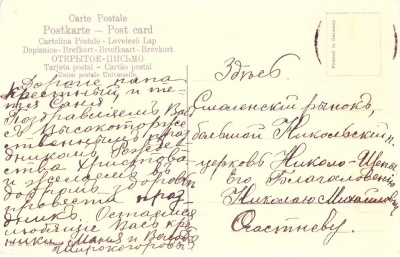 Carte Postale
Postkarte – Post card
Cartolina Postale – Levelező Lap
Dopisnice – Brefkort – Briefkaart – Brevkort
ОТКРЫТОЕ-ПИСЬМО
Tarjeta postal – Cartão postal
Union postale Universelle
Printed in Germany
Дорогие папа
крестный и те-
тя Саня
Поздравляемъ Васъ
съ Высокоторже-
ственнымъ праз-
дникомъ Рожде-
ства Христова
и желаемъ въ
добромъ здоровьи
провести праз-
дникъ. Остаемся
любящіе Васъ кре-
стники Маня и
Широкогоровы
Здѣсь
Смоленскій рынокъ,
большой Никольскій п.
церковь Николо-Щепы
Его Благословенію
Николаю Михайловичу
Счастневу.